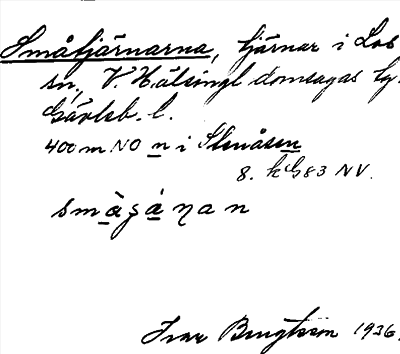 Småtjärnarna, tjärnar i Los
sn, V. Hälsingl domsagas tg.
Gävleb. l.
400 m NO n i Stenåsen
8. kG83 NV.
smàʒánan
Ivar Bengtsson 1936.